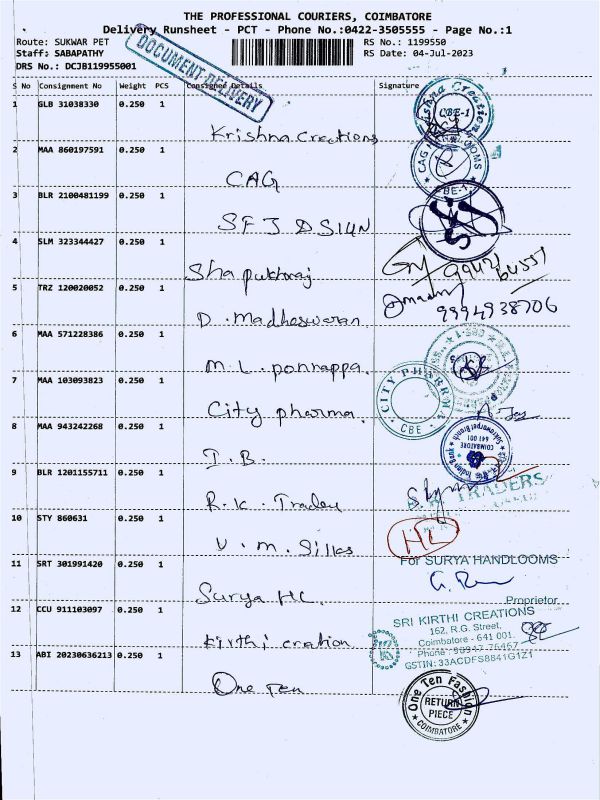 THE PROFESSIONAL COURIERS, COIMBATORE
Delivery Runsheet - PCT - Phone No.:0422-3505555 - Page No.:1
Route: SUKWAR PET
RS No.: 1199550
Staff: SABAPATHY
RS Date: 04-Jul-2023
DRS No.: DCJB119955001
DOCUMENT DELIVERY
S No Consignment No Weight PCS Consignee Details Signature
1 GLB 31038330 0.250 1
Krishna Creations
Krishna Creations
CBE-1
2 MAA 860197591 0.250 1
CAG
CAG
CBE-1
3 BLR 2100481199 0.250 1
SFJ DSIUN
4 SLM 323344427 0.250 1
Sha pukhraj
99421 64551
5 TRZ 120020052 0.250 1
D. Madheswaran.
9994938706
6 MAA 571228386 0.250 1
M. L. ponnappa.
7 MAA 103093823 0.250 1
City pharma.
CITY PHARMA
CBE
8 MAA 943242268 0.250 1
I. B.
Indian Bank
Sukrawarpet Branch
COIMBATORE
641 001
9 BLR 1201155711 0.250 1
R. K. Tradey
TRADERS
10 STY 860631 0.250 1
V. M. Silks
HL
11 SRT 301991420 0.250 1
Surya HL.
For SURYA HANDLOOMS
Proprietor
12 CCU 911103097 0.250 1
Kirthi cration
SRI KIRTHI CREATIONS
162, R.G. Street,
Coimbatore - 641 001.
Phone : 98947 76467
GSTIN: 33ACDFS8841G1Z1
13 ABI 20230636213 0.250 1
One Ten
One Ten Fashion
RETURN
PIECE
COIMBATORE